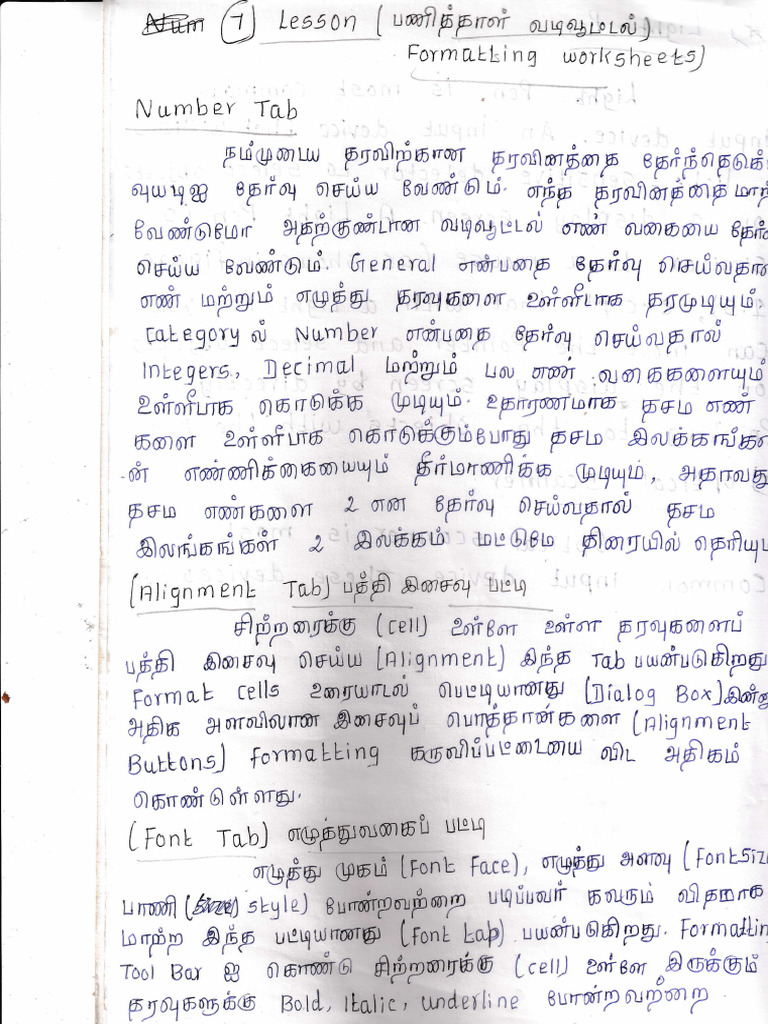 7 Lesson (பணித்தாள் வடிவூட்டல்)
Formatting worksheets)
Number Tab
நம்முடைய தரவிற்கான தரவினத்தை தேர்ந்தெடுக்
தேர்வு செய்ய வேண்டும். எந்த தரவினத்தை மாற்
வேண்டுமோ அதற்குண்டான வடிவூட்டல் எண் வகையை தேர்
செய்ய வேண்டும். General என்பதை தேர்வு செய்வதா
எண் மற்றும் எழுத்து தரவுகளை உள்ளீடாக தரமுடியும்.
Category ல் Number என்பதை தேர்வு செய்வதால்
Integers, Decimal மற்றும் பல எண் வகைகளையும்
உள்ளீபாக கொடுக்க முடியும். உதாரணமாக தசம எண்
களை உள்ளீபாக கொடுக்கும்போது தசம இலக்கங்க
ன் எண்ணிக்கையையும் தீர்மாணிக்க முடியும், அதாவது
தசம எண்களை 2 என தேர்வு செய்வதால் தசம
இலங்கங்கள் 2 இலக்கம் மட்டுமே திரையில் தெரியு
(Alignment Tab) பத்தி இசைவு பட்டி
சிற்றரைக்கு (cell) உள்ளே உள்ள தரவுகளைப்
பத்தி இசைவு செய்ய (Alignment) இந்த Tab பயன்படுகிறது
Format cells உரையாடல் பெட்டியானது (Dialog Box) இன்னு
அதிக அளவிலான இசைவுப் பொத்தான்களை (Alignment
Buttons) Formatting கருவிப்பட்டையை விட அதிகம்
கொண்டுள்ளது.
(Font Tab) எழுத்துவகைப் பட்டி
எழுத்து முகம் (Font Face), எழுத்து அளவு (Font Size
பாணி (style) போன்றவற்றை படிப்பவர் கவரும் விதமாக
மாற்ற இந்த பட்டியானது (Font tab) பயன்படுகிறது. Formattin
Tool Bar ஐ கொண்டு சிற்றரைக்கு (cell) உள்ளே இருக்கும்
தரவுகளுக்கு Bold, Italic, underline போன்றவற்றை